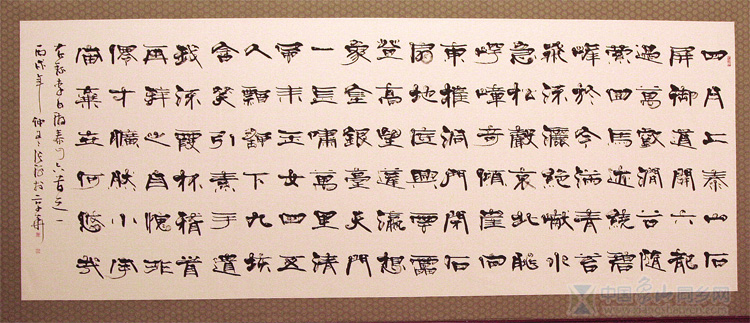 四月上泰山石
屏御道開六龍
過萬壑澗谷隨
縈回馬迹繞碧
峰於今滿青苔
飛流灑絕巘水
急松聲哀北眺
崿嶂奇傾崖向
東摧洞門閉石
扇地底興雲雷
登高望蓬瀛想
象金銀臺天門
一長嘯萬里清
風來玉女四五
人飄飖下九垓
含笑引素手遺
我流霞杯稽首
再拜之自愧非
僊才曠然小宇
宙棄世何悠哉
右錄李白游泰山六首之一
丙戌年仲夏
中国象山同乡网